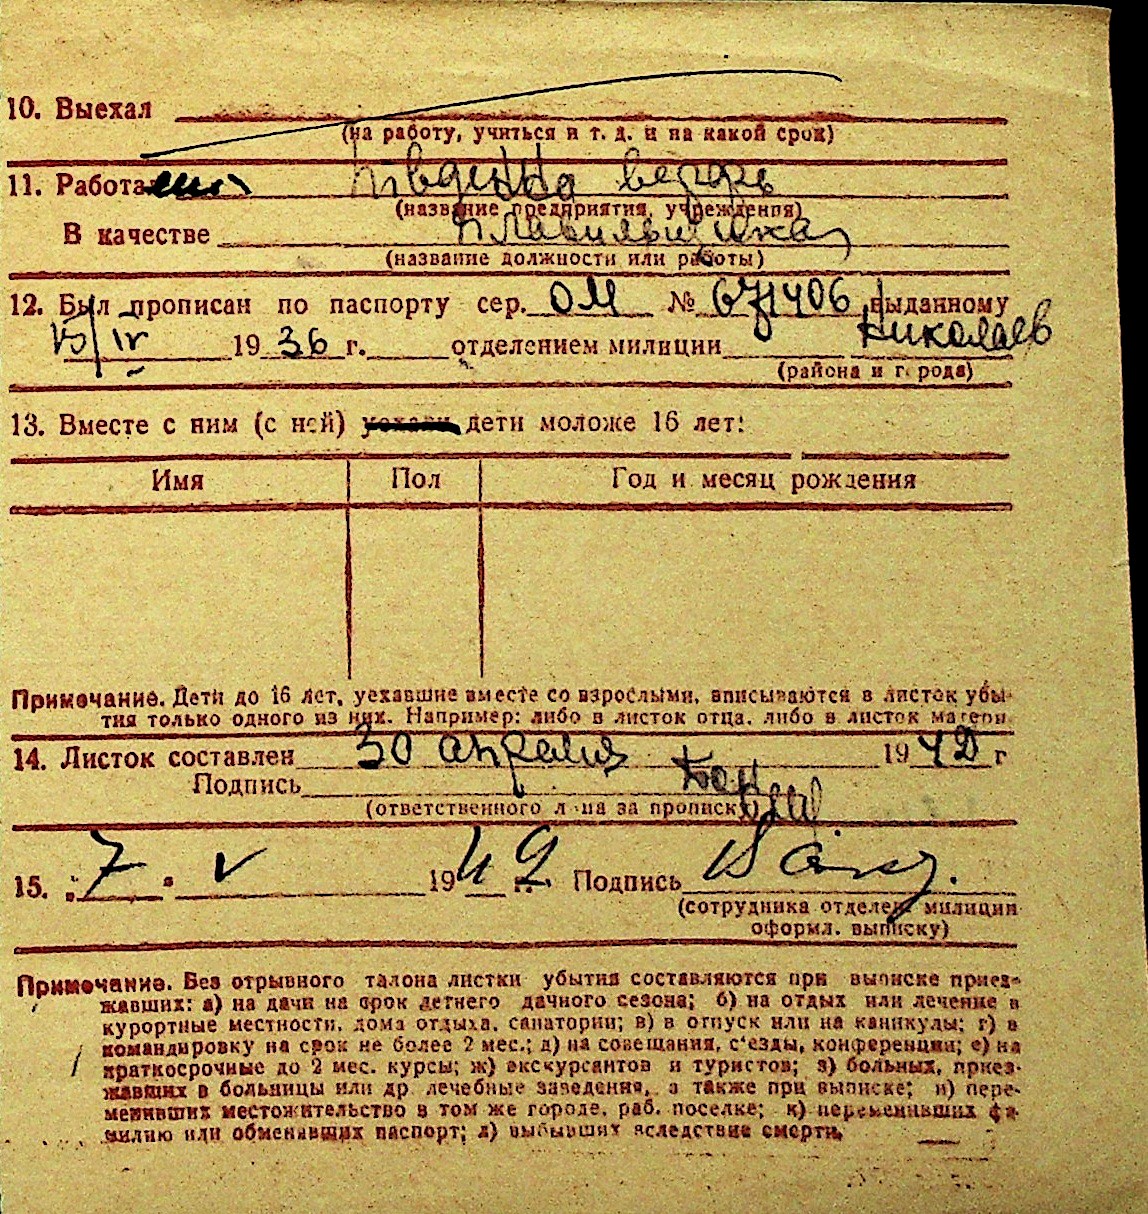 10. Выехал
(на работу, учиться и т. д. и на какой срок)
11. Работа
(название предприятия, учреждения)
В качестве плавильщика
(название должности или работы)
12. Был прописан по паспорту сер. ОМ № 671406 выданному
15/IV 19 36 г. отделением милиции Николаев
(района и города)
13. Вместе с ним (с ней) уехали дети моложе 16 лет:
Имя Пол Год и месяц рождения
Примечание. Дети до 16 лет, уехавшие вместе со взрослыми, вписываются в листок убы-
тия только одного из них. Например: либо в листок отца, либо в листок матери
14. Листок составлен 30 апреля 19 г
Подпись
(ответственного лица за прописку)
15. „7 " V 19 г. Подпись
(сотрудника отделен. милиции
оформл. выписку)
Примечание. Без отрывного талона листки убытия составляются при выписке приез-
жавших: а) на дачи на срок летнего дачного сезона; б) на отдых или лечение в
курортные местности, дома отдыха, санатории; в) в отпуск или на каникулы; г) в
командировку на срок не более 2 мес.; д) на совещания, с'езды, конференции; е) на
краткосрочные до 2 мес. курсы; ж) экскурсантов и туристов; з) больных, приез-
жавших в больницы или др лечебные заведения, а также при выписке; и) пере-
менивших местожительство в том же городе, раб. поселке; к) переменивших фа-
милию или обменявших паспорт; л) выбывших вследствие смерти,